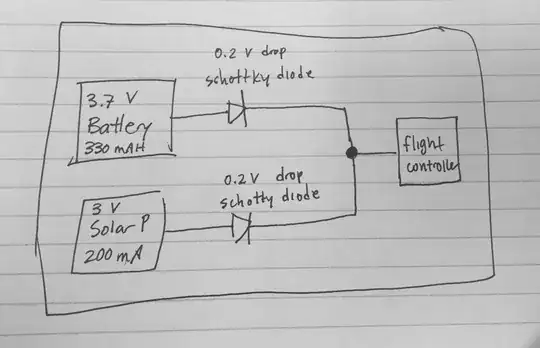 0.2 V drop
schottky diode
3.7 V
Battery
330 mAH
flight
controller
0.2 V drop
schottky diode
3 V
Solar P
200 mA